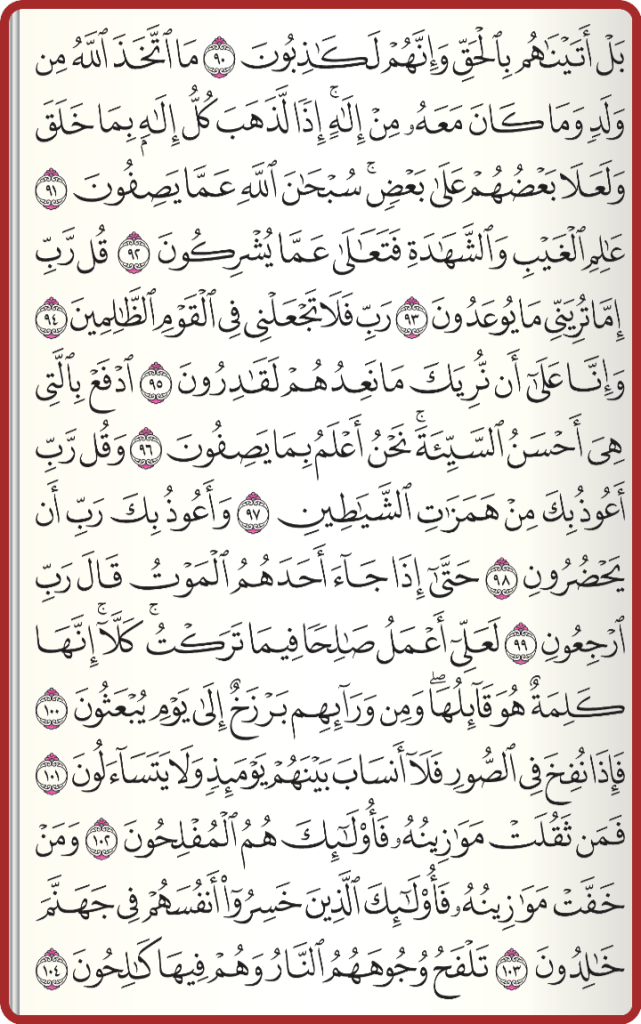 بَلْ أَتَيْنَـٰهُم بِٱلْحَقِّ وَإِنَّهُمْ لَكَـٰذِبُونَ ٩٠ مَا ٱتَّخَذَ ٱللَّهُ مِن
وَلَدٍ وَمَا كَانَ مَعَهُۥ مِنْ إِلَـٰهٍ ۚ إِذًا لَّذَهَبَ كُلُّ إِلَـٰهٍۭ بِمَا خَلَقَ
وَلَعَلَا بَعْضُهُمْ عَلَىٰ بَعْضٍ ۚ سُبْحَـٰنَ ٱللَّهِ عَمَّا يَصِفُونَ ٩١
عَـٰلِمِ ٱلْغَيْبِ وَٱلشَّهَـٰدَةِ فَتَعَـٰلَىٰ عَمَّا يُشْرِكُونَ ٩٢ قُل رَّبِّ
إِمَّا تُرِيَنِّى مَا يُوعَدُونَ ٩٣ رَبِّ فَلَا تَجْعَلْنِى فِى ٱلْقَوْمِ ٱلظَّـٰلِمِينَ ٩٤
وَإِنَّا عَلَىٰٓ أَن نُّرِيَكَ مَا نَعِدُهُمْ لَقَـٰدِرُونَ ٩٥ ٱدْفَعْ بِٱلَّتِى
هِىَ أَحْسَنُ ٱلسَّيِّئَةَ ۚ نَحْنُ أَعْلَمُ بِمَا يَصِفُونَ ٩٦ وَقُل رَّبِّ
أَعُوذُ بِكَ مِنْ هَمَزَٰتِ ٱلشَّيَـٰطِينِ ٩٧ وَأَعُوذُ بِكَ رَبِّ أَن
يَحْضُرُونِ ٩٨ حَتَّىٰٓ إِذَا جَآءَ أَحَدَهُمُ ٱلْمَوْتُ قَالَ رَبِّ
ٱرْجِعُونِ ٩٩ لَعَلِّىٓ أَعْمَلُ صَـٰلِحًا فِيمَا تَرَكْتُ ۚ كَلَّآ ۚ إِنَّهَا
كَلِمَةٌ هُوَ قَآئِلُهَا ۖ وَمِن وَرَآئِهِم بَرْزَخٌ إِلَىٰ يَوْمِ يُبْعَثُونَ ١٠٠
فَإِذَا نُفِخَ فِى ٱلصُّورِ فَلَآ أَنسَابَ بَيْنَهُمْ يَوْمَئِذٍ وَلَا يَتَسَآءَلُونَ ١٠١
فَمَن ثَقُلَتْ مَوَٰزِينُهُۥ فَأُو۟لَـٰٓئِكَ هُمُ ٱلْمُفْلِحُونَ ١٠٢ وَمَنْ
خَفَّتْ مَوَٰزِينُهُۥ فَأُو۟لَـٰٓئِكَ ٱلَّذِينَ خَسِرُوٓا۟ أَنفُسَهُمْ فِى جَهَنَّمَ
خَـٰلِدُونَ ١٠٣ تَلْفَحُ وُجُوهَهُمُ ٱلنَّارُ وَهُمْ فِيهَا كَـٰلِحُونَ ١٠٤